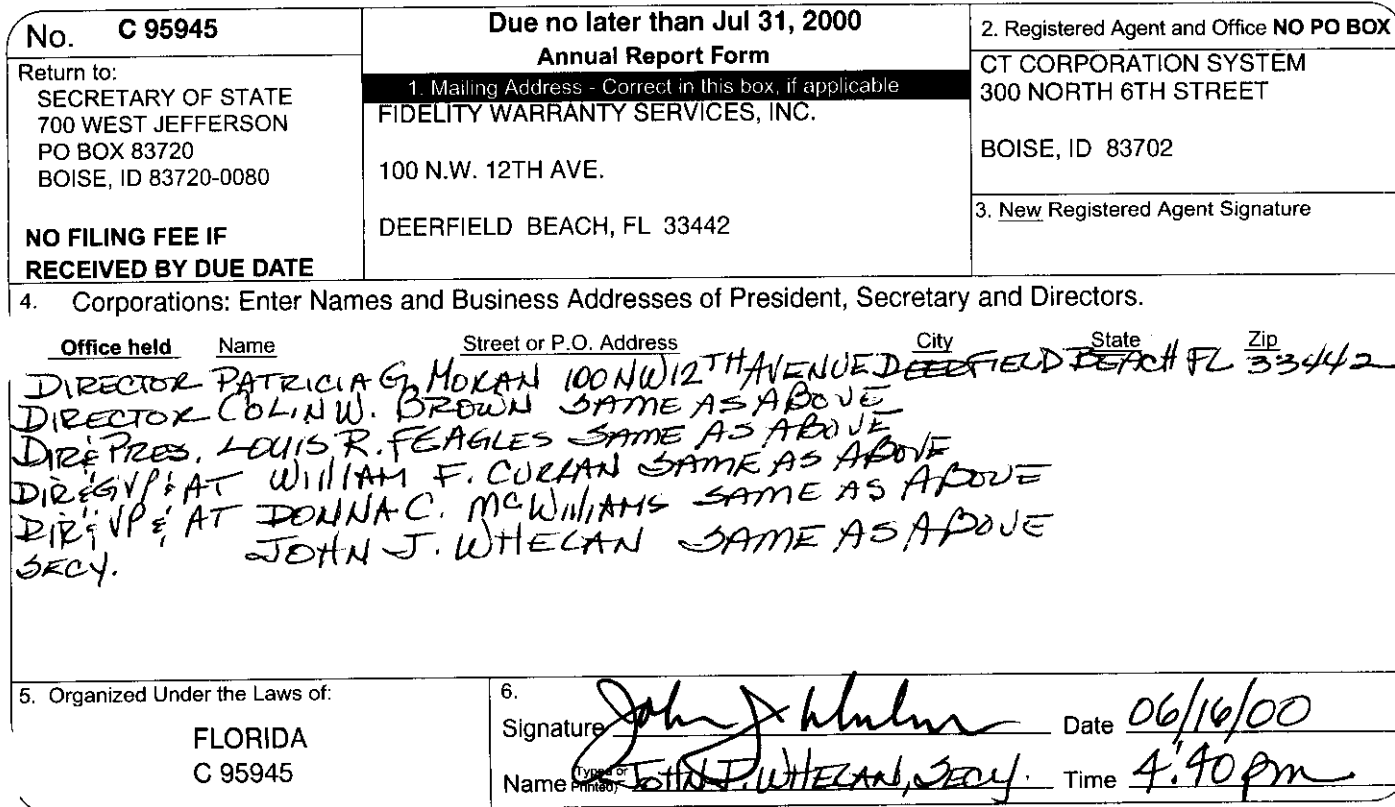 No. C 95945
Return to:
SECRETARY OF STATE
700 WEST JEFFERSON
PO BOX 83720
BOISE, ID 83720-0080
NO FILING FEE IF
RECEIVED BY DUE DATE
Due no later than Jul 31, 2000
Annual Report Form
1. Mailing Address - Correct in this box, if applicable
FIDELITY WARRANTY SERVICES, INC.
100 N.W. 12TH AVE.
DEERFIELD BEACH, FL 33442
2. Registered Agent and Office NO PO BOX
CT CORPORATION SYSTEM
300 NORTH 6TH STREET
BOISE, ID 83702
3. New Registered Agent Signature
4. Corporations: Enter Names and Business Addresses of President, Secretary and Directors.
Office held Name Street or P.O. Address City State Zip
DIRECTOR PATRICIA G. MORAN 100 NW 12TH AVENUE DEERFIELD BEACH FL 33442
DIRECTOR COLIN W. BROWN SAME AS ABOVE
DIR & PRES. LOUIS R. FEAGLES SAME AS ABOVE
DIR & GVP & AT WILLIAM F. CURRAN SAME AS ABOVE
DIR & VP & AT DONNA C. McWILLIAMS SAME AS ABOVE
SECY. JOHN J. WHELAN SAME AS ABOVE
5. Organized Under the Laws of:
FLORIDA
C 95945
6.
Signature John J Whelan Date 06/16/00
Name (Typed or Printed) JOHN J. WHELAN, SECY. Time 4:40 pm